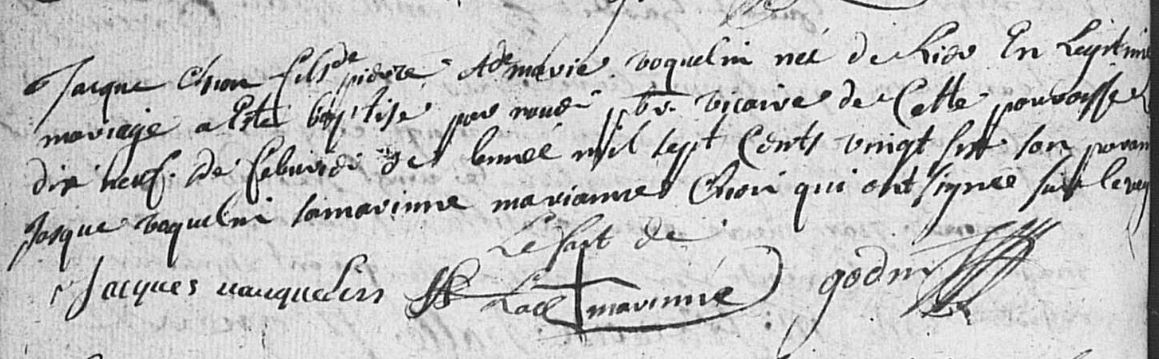 Jacque Chon fils de pierre & de marie voquelin née de hier En Legitime
mariage a Esté baptisé par nous pbr vicaire de Cette parroisse
dix neuf de febvrier de lannée mil sept Cents vingt son parain
Jasque voquelin samarinne marianne Chon qui ont signée sur le reg
Le fait de
Jacques vauquelin Lad marinne godin